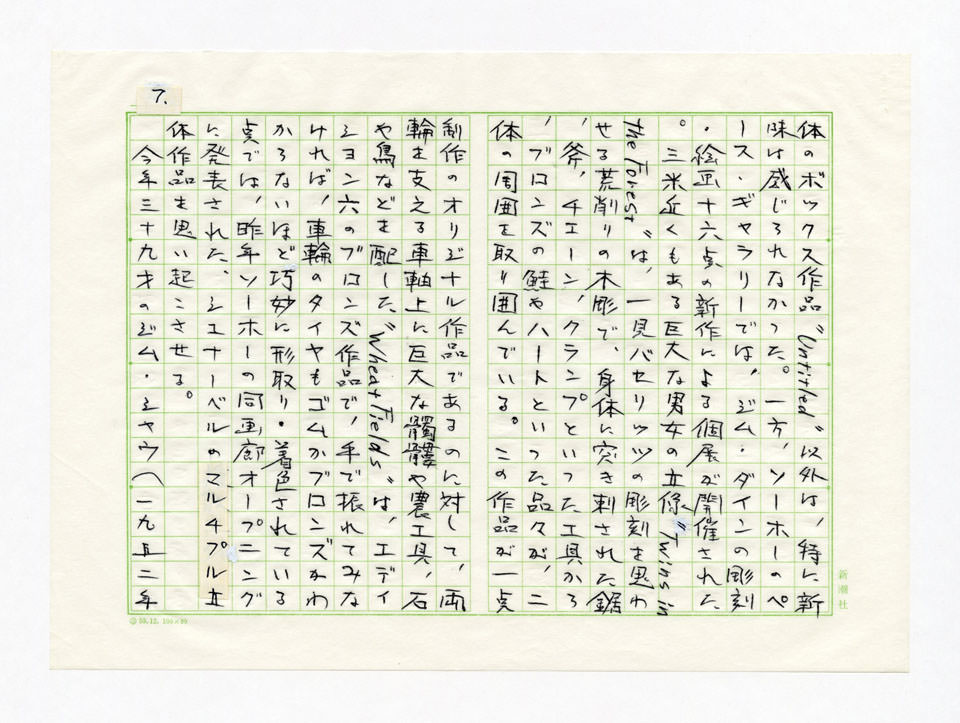 7.
体のボックス作品〝Untitled〟以外は、特に新
味は感じられなかった。一方、ソーホーのペ
ース・ギャラリーでは、ジム・ダインの彫刻
・絵画十六点の新作による個展が開催された
。三米近くもある巨大な男女の立像〝Twins in
the Forest〟は、一見バセリッツの彫刻を思わ
せる荒削りの木彫で、身体に突き刺された鋸
、斧、チェーン、クランプといった工具から
、ブロンズの鮭やハートといった品々が、二
体の周囲を取り囲んでいる。この作品が一点
制作のオリジナル作品であるのに対して、両
輪を支える車軸上に巨大な髑髏や農工具、石
や鳥などを配した〝Wheat Fields〟は、エディ
ション六のブロンズ作品で、手で振れてみな
ければ、車輪のタイヤもゴムかブロンズかわ
からないほど巧妙に形取り・着色されている
点では、昨年ソーホーの同画廊オープニング
に発表された、シュナーベルのマルチプル立
体作品を思い起こさせる。
今年三十九才のジム・ショウ(一九五二年
新潮社
55.12. 100×80